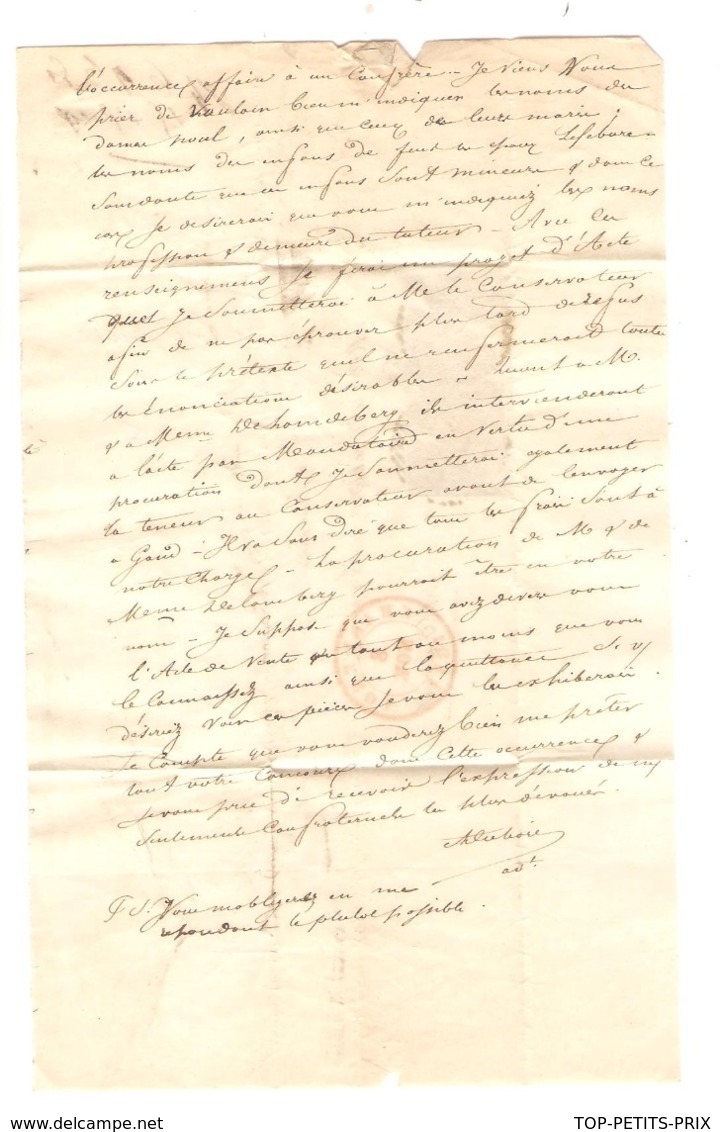 l'occurrence affaire à un Confrère. - Je viens Vous
prier de vouloir bien m'indiquer les noms des
dames noul, ainsi que ceux de leurs maris;
les noms des enfans de feut les époux Lefebure -
Sans doute que ces enfans sont mineurs & dans ce
cas je desirerai que vous m'indiquiez les noms
profession & demeure du tuteur - Avec ces
renseignemens je ferai un projet d'Acte
quel je soumetterai à Mr le Conservateur
afin de ne pas éprouver plus tard de refus
sous le prétexte qu'il ne renfermerait toutes
les énonciations désirables - Quant à M.
& à Meme ils interviendront
à l'acte par Mandataire en vertu d'une
procuration dont je soumetterai également
la teneur au Conservateur avant de l'envoyer
à Gand - Il va sans dire que tous les frais sont à
notre charge - La procuration de M & de
Meme pourrait être en votre
nom - Je suppose que vous avez devers vous
l'Acte de Vente ou tout au moins que vous
le Connaissez ainsi que la quittance si vs
désiriez voir ces pièces je vous les exhiberai
Je Compte que vous voudrez bien me prêter
tout votre Concours dans cette occurrence &
je vous prie de recevoir l'expression de mes
sentiments Confraternels les plus dévoués.
adt.
P S. Vous m'obligerez en me
répondant le plutot possible.
TOP-PETITS-PRIX